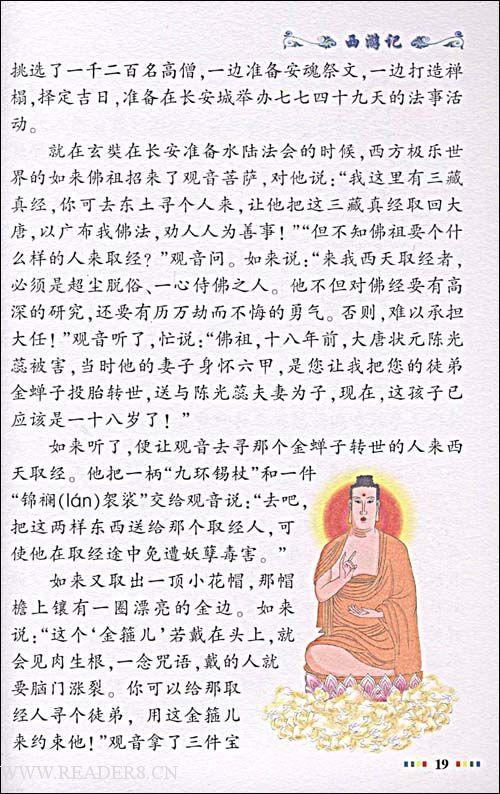 西游记
挑选了一千二百名高僧，一边准备安魂祭文，一边打造禅
榻，择定吉日，准备在长安城举办七七四十九天的法事活
动。
就在玄奘在长安准备水陆法会的时候，西方极乐世
界的如来佛祖招来了观音菩萨，对他说：“我这里有三藏
真经，你可去东土寻个人来，让他把这三藏真经取回大
唐，以广布我佛法，劝人人为善事！”“但不知佛祖要个什
么样的人来取经？”观音问。如来说：“来我西天取经者，
必须是超尘脱俗、一心侍佛之人。他不但对佛经要有高
深的研究，还要有历万劫而不悔的勇气。否则，难以承担
大任！”观音听了，忙说：“佛祖，十八年前，大唐状元陈光
蕊被害，当时他的妻子身怀六甲，是您让我把您的徒弟
金蝉子投胎转世，送与陈光蕊夫妻为子，现在，这孩子已
应该是一十八岁了！”
如来听了，便让观音去寻那个金蝉子转世的人来西
天取经。他把一柄“九环锡杖”和一件
“锦襕(lán)袈裟”交给观音说：“去吧，
把这两样东西送给那个取经人，可
使他在取经途中免遭妖孽毒害。”
如来又取出一顶小花帽，那帽
檐上镶有一圈漂亮的金边。如来
说：“这个‘金箍儿’若戴在头上，就
会见肉生根，一念咒语，戴的人就
要脑门涨裂。你可以给那取
经人寻个徒弟，用这金箍儿
来约束他！”观音拿了三件宝
19
WWW.READER8.CN